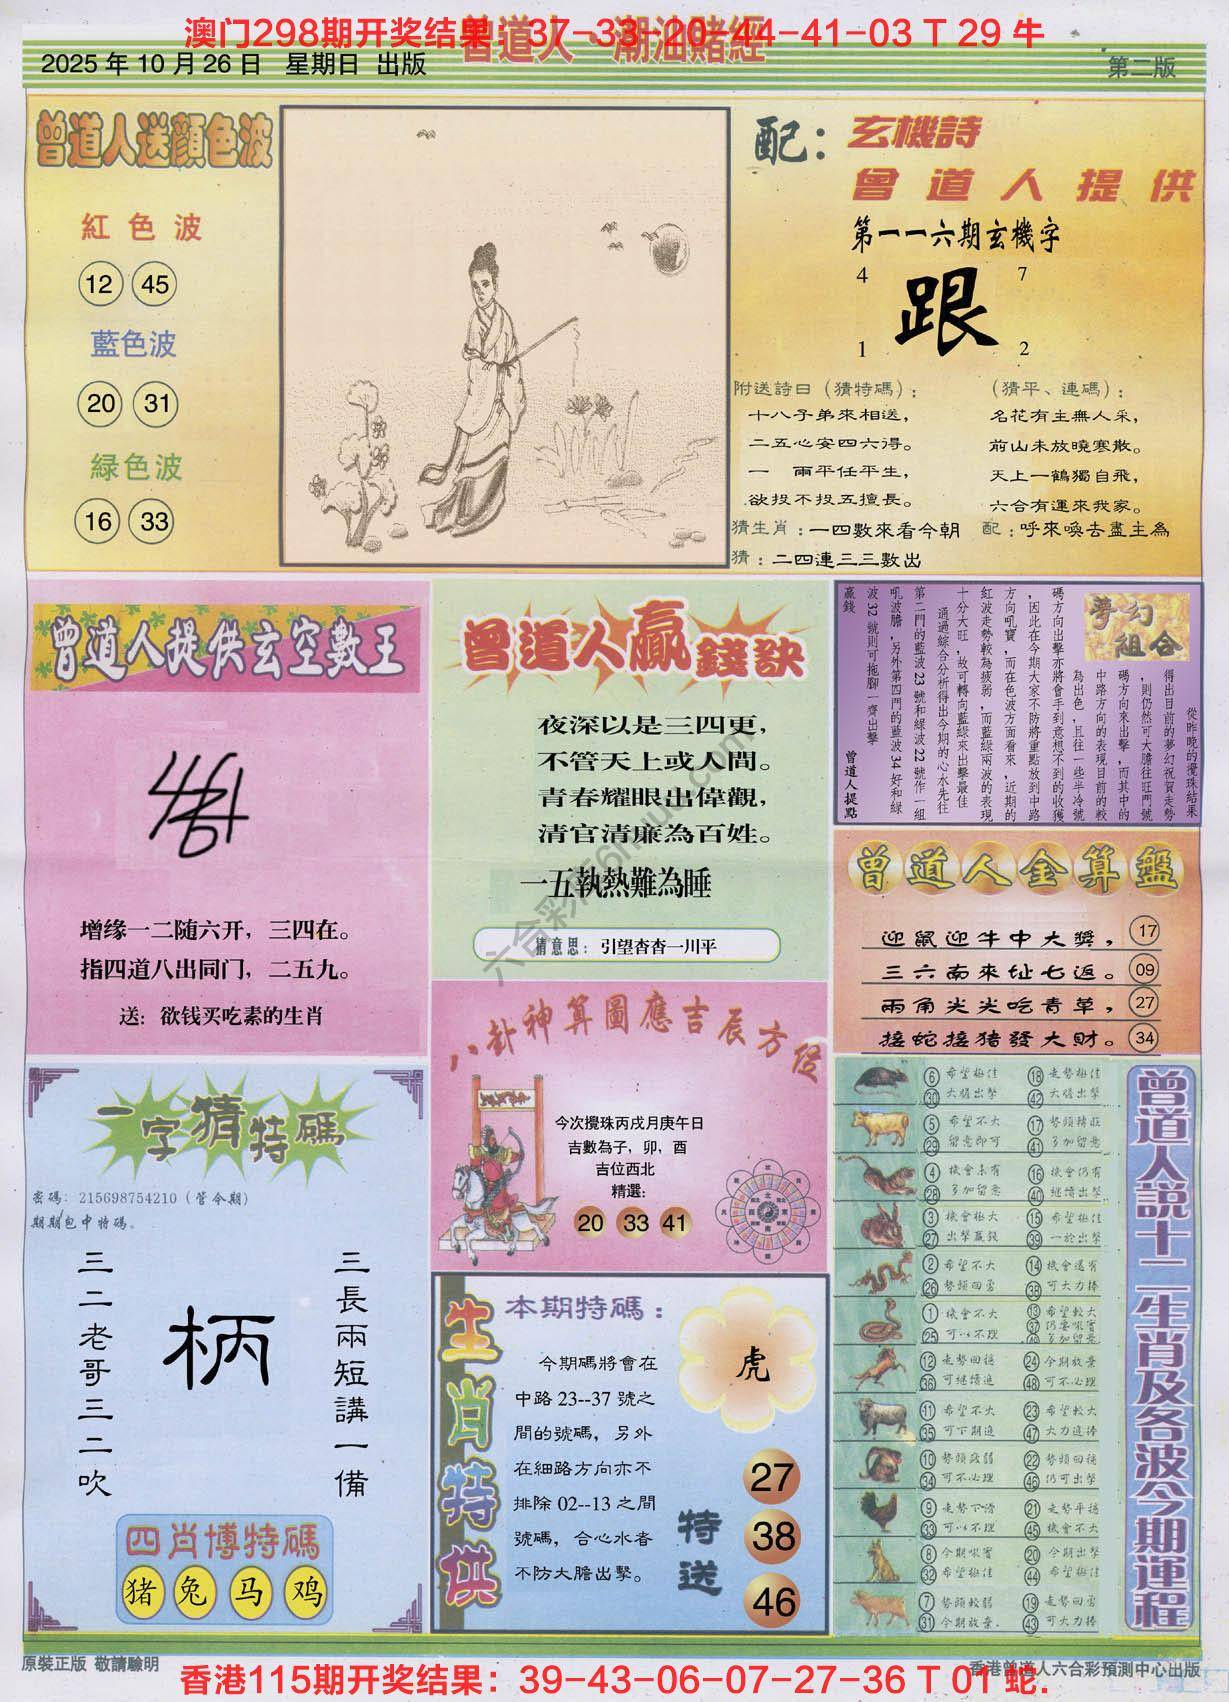 澳门298期开奖结果：37-33-20-44-41-03 T 29 牛
曾道人·潮汕賭經
2025 年 10 月 26 日 星期日 出版
第二版
曾道人送顏色波
紅色波
12 45
藍色波
20 31
緑色波
16 33
配：玄機詩
曾道人提供
第一一六期玄機字
4 7
跟
1 2
附送詩曰（猜特碼）：
十八子弟來相送，
二五心安四六得。
一 兩平任平生，
欲投不投五擅長。
猜生肖：一四數來看今朝
猜：二四連三三數出
（猜平、連碼）：
名花有主無人采，
前山未放曉寒散。
天上一鶴獨自飛，
六合有運來我家。
配：呼來喚去盡主為
曾道人提供玄空數王
增缘一二随六开，三四在。
指四道八出同门，二五九。
送：欲钱买吃素的生肖
曾道人贏錢訣
夜深以是三四更，
不管天上或人間。
青春耀眼出偉觀，
清官清廉為百姓。
一五執熱難為睡
猜意思：引望杳杳一川平
夢幻組合
從昨晚的攪珠結果
得出目前的夢幻祝賀走勢
，則仍然可大膽往旺門號
碼方向來出擊，而其中的
中路方向的表現目前的較
為出色，且往一些半冷號
碼方向出擊亦將會手到意想不到的收獲
，因此在今期大家不防將重點放到中路
方向吼寶，而在色波方面看來，近期的
紅波走勢較為疲弱，而藍綠兩波的表現
十分大旺，故可轉向藍綠來出擊最佳
通過綜合分析得出今期的心水先往
第二門的藍波 23 號和綠波 22 號作一組
吼波膽，另外第四門的藍波 34 好和綠
波 32 號則可拖腳一齊出擊
贏錢
曾道人提點
曾道人金算盤
迎鼠迎牛中大獎， 17
三六南來址七返。 09
兩角尖尖吃青草， 27
接蛇接猪發大財。 34
八卦神算圖應吉辰方位
今次攪珠丙戌月庚午日
吉數為子，卯，酉
吉位西北
精選：
20 33 41
一字猜特碼
密碼：215698754210（管今期）
期期包中特碼。
三二老哥三二吹
柄
三長兩短講一備
四肖博特碼
猪 兔 马 鸡
生肖特供
本期特碼：
虎
今期碼將會在
中路 23--37 號之
間的號碼，另外
在細路方向亦不
排除 02--13 之間
號碼，合心水者
不防大膽出擊。
特送
27
38
46
曾道人説十二生肖及各波今期運程
6 希望極佳 18 走勢極佳
30 大膽出擊 42 大膽出擊
5 希望不大 17 勢頭精旺
29 留意即可 41 多加留意
4 機會未有 16 機會仍有
28 多加留意 40 繼續出擊
3 機會極大 15 希望極佳
27 出擊贏錢 39 一於出擊
2 希望不大 14 機會還有
26 勢頭回勇 38 可大力捧
1 機會不大 13 希望較大
25 可以不理 37 仍要吼實
多加留意
12 走勢回穩 24 今期放棄
36 可繼續追 48 可不必理
11 希望不大 23 希望較大
35 可下期追 47 大力追捧
10 勢頭疲弱 22 勢頭回穩
34 可不必理 46 仍可出擊
9 走勢下滑 21 走勢平穩
33 可以不理 45 機會不大
8 今期吼實 20 今期出擊
32 希望極佳 44 希望極佳
7 勢頭較弱 19 走勢回勇
31 今期放棄. 43 可大力捧
原裝正版 敬請驗明
香港曾道人六合彩預測中心出版
香港115期开奖结果：39-43-06-07-27-36 T 01 蛇.